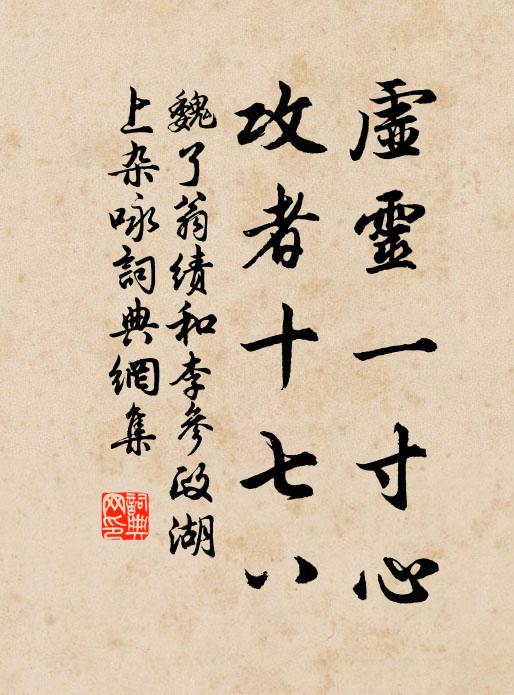 虛靈一寸心
攻者十七八
魏了翁續和李參政湖
上杂咏詞典網集
詞典
网印